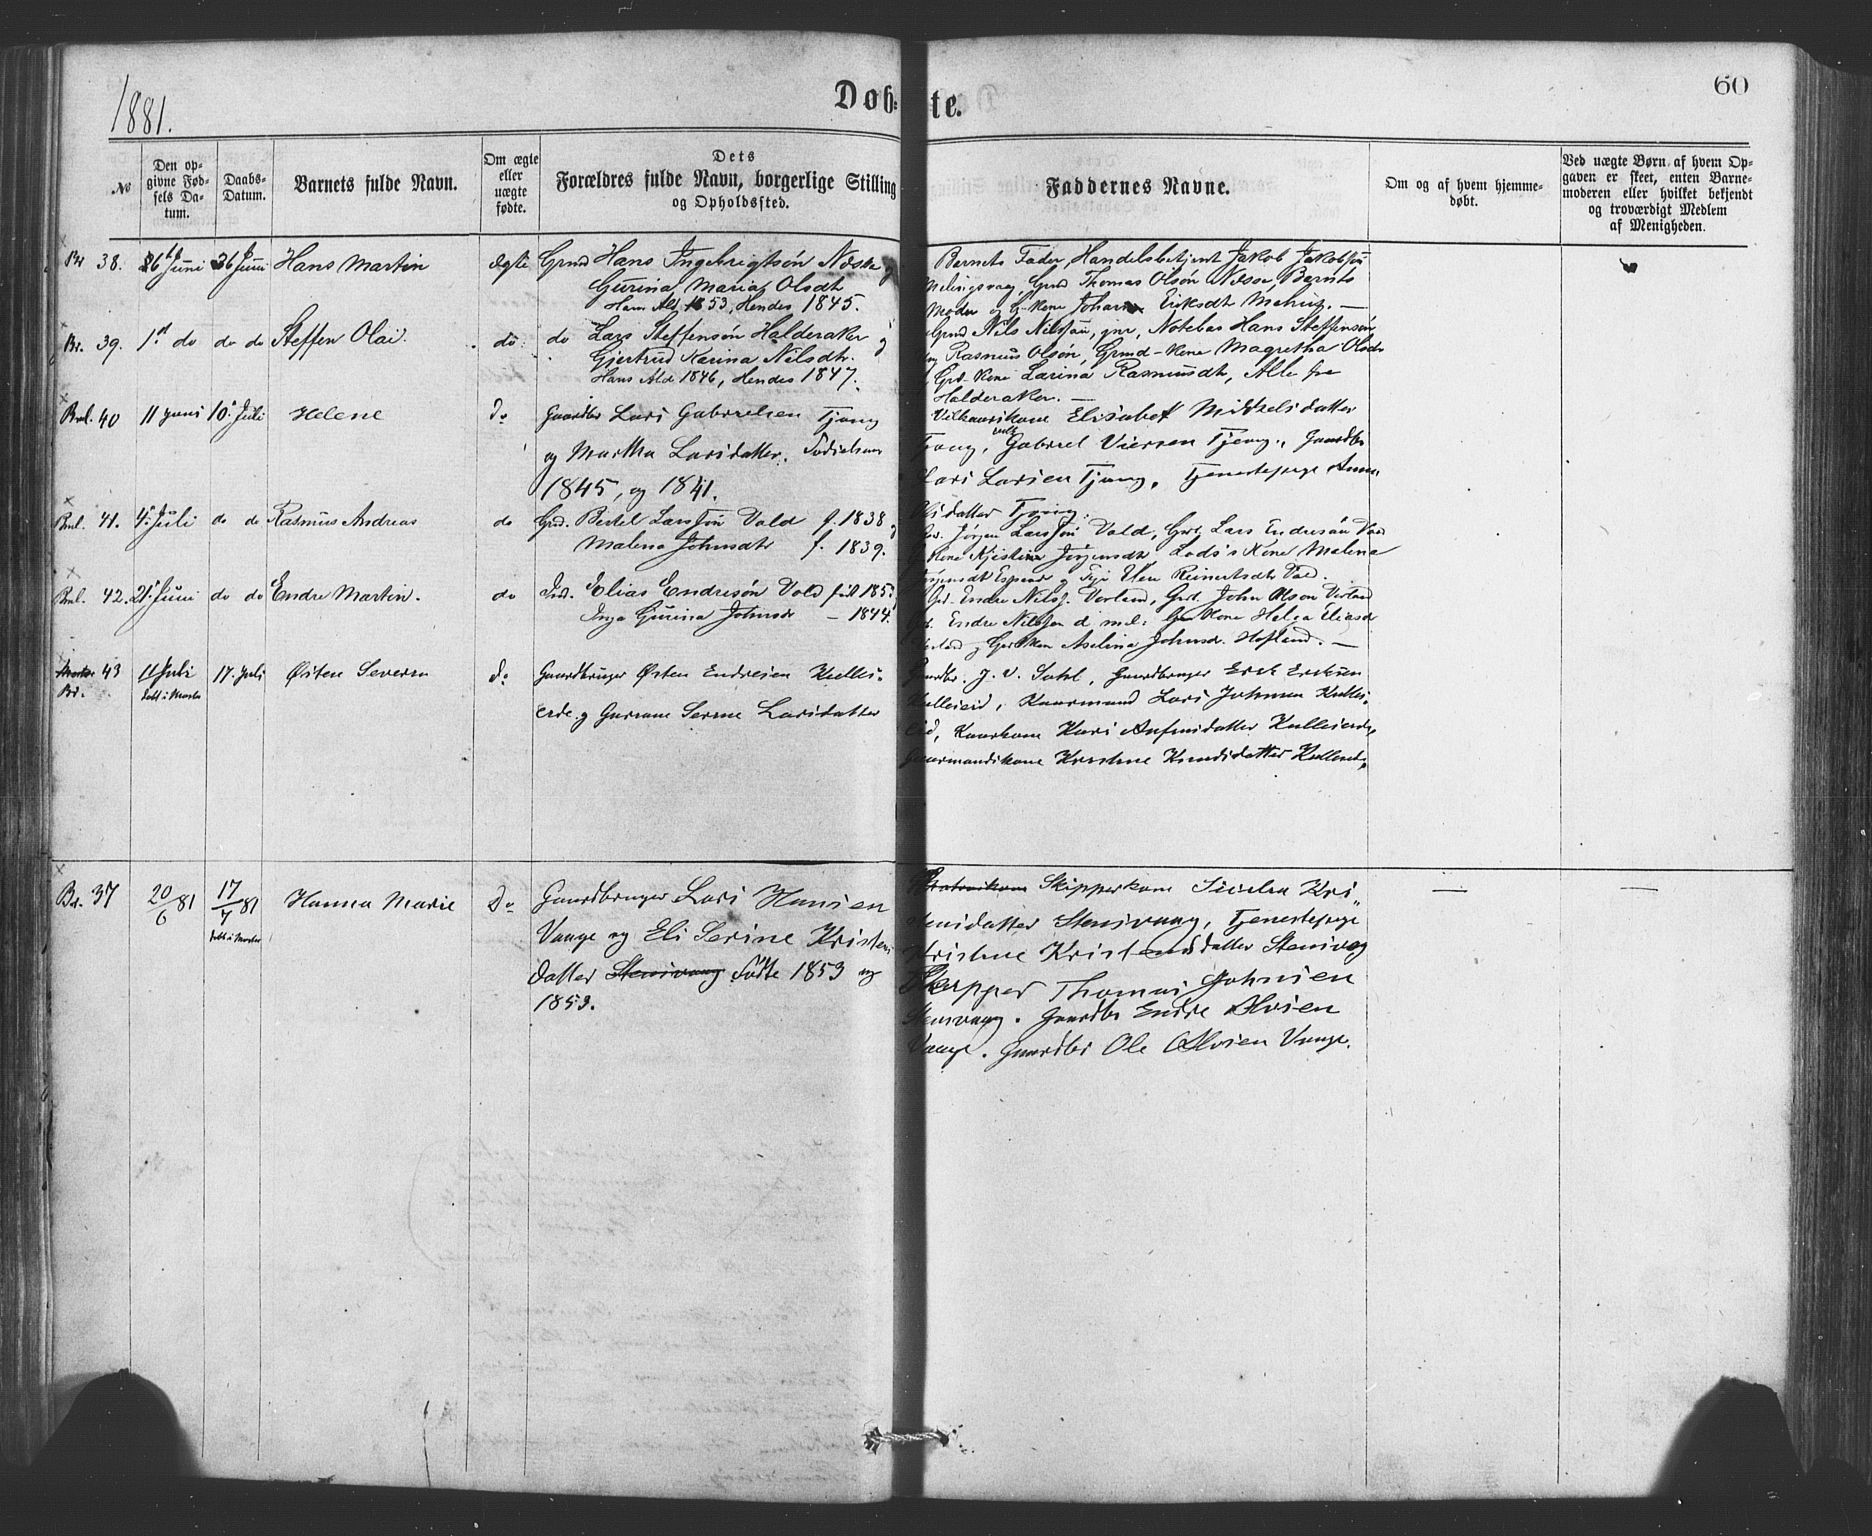 1881.
Døb-te.
60
No
Den opgivne Fødsels Datum.
Daabs-Datum.
Barnets fulde Navn.
Om ægte eller uægte fødte.
Dets Forældres fulde Navn, borgerlige Stilling og Opholdssted.
Faddernes Navne.
Om og af hvem hjemmedøbt.
Ved uægte Børn af hvem Opgaven er skeet, enten Barnemoderen eller hvilket bekjendt og troværdigt Medlem af Menigheden.
38. Juni 26 Juni Hans Martin ægte
Hans Ingebrigtsøn Næsse og
Gurina Maria Olsdt
Hans Ald 1853, Hendes 1845.
Barnets Fader, Handelsbetjent Jakob Jakobsøn
Mælingsvag, Grmd Thomas Olsøn Næsse, Barnets
Moder og G-kone Eriksdt
Br. 39. 1st do do do Steffen Olai. do
do Lars Steffensøn Halderaker og
Gjertrud Karina Nilsdtr.
Hans Alder 1846, Hendes 1847.
Grmd Nils Nilssøn, jnr, Notebas Hans Steffensøn
og Rasmus Olsøn, Grmd-Kone Magretha Olsdr
Grd-Kone Larina Rasmusdt, Alle fra
Halderaker. —
Bml. 40 11 Juni 10 Juli Helene do
Gaardbr Lars Gabrielsen Tjong
og Martha Larsdatter.
1845, og 1841.
Elisabet Mikkelsdatter
Tjong, Gabriel Tjong, Gaardbr
Lars Larsen Tjong, Tjenestepige Anna
Olsdatter Tjong.
Bml. 41. 4. Juli do do Rasmus Andreas do
Grd. Bertel Larssøn Vold f. 1838 og
Malena Johnsdtr f. 1839.
Grd. Jørgen Larssøn Vold, Grd Lars Endresøn Vold
Kone Jørgensdt Kone Malena
Jørgensdt og Pige Elen Reinertsdtr Vold.
Bml. 42. 21 Juni do do Endre Martin. do
Ind. Elias Endresøn Vold
Inga Gurina Johnsdr — 1844.
Grd. Endre Nilss. Vorland, Grd. John Olson Vorland
Endre Nilssen d. mel. Kone Helga Eliasd
og Grd Kone Aselina Johnsd. Hofland. —
43 11 Juli døbt i Moster 17. Juli Østen Severin do
Br.
Gaardbruger Østen Endresen Kulleserde
og Gurine Serine Larsdatter
Gaardbr. J. V. Sahl, Gaardbruger Erik Eriksen
Kulleseid, Kaarmand Lars Johnsen Kulleseid,
Kaarkone Kari Anfinsdatter Kulleseide,
Gaarmandskone Kristine Knudsdatter Kulleseid,
Br. 37 20/6 81 17/7 81 døbt i Moster Hanna Marie Do
Gaardbruger Lars Hansen
Vaage og Eli Serine Kristensdatter
Stensvaag Fødte 1853 og
1853.
Skipperkone Kristensdatter
Stensvaag, Tjenestepige
Kristine Kristensdatter Stensvag
Skipper Thomas Johnsen
Stensvaag. Gaardbr Endre Olsen
Vaage. Gaardbr Ole Olsen Vaage.
— —